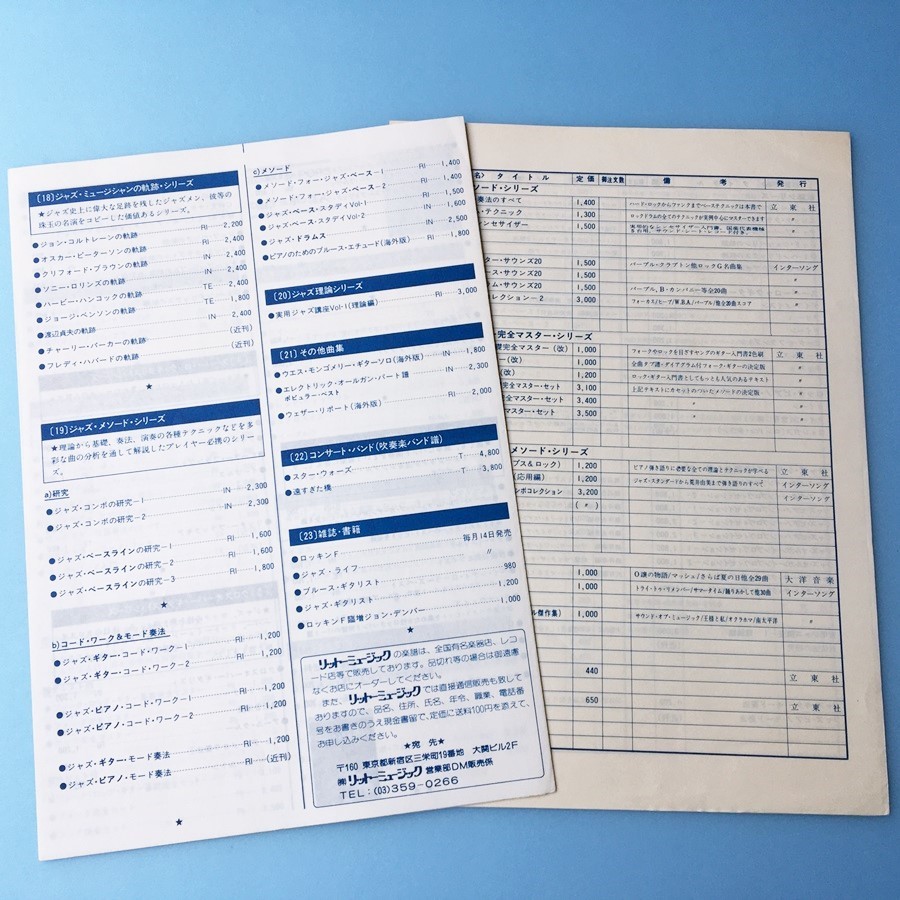 〔18〕ジャズ・ミュージシャンの軌跡・シリーズ
★ジャズ史上に偉大な足跡を残したジャズメン、彼等の
珠玉の名演をコピーした価値あるシリーズ。
●ジョン・コルトレーンの軌跡 RI 2,200
●オスカー・ピーターソンの軌跡 RI 2,400
●クリフォード・ブラウンの軌跡 IN 2,400
●ソニー・ロリンズの軌跡 IN 2,400
●ハービー・ハンコックの軌跡 TE 2,400
●ジョージ・ベンソンの軌跡 TE 1,800
●渡辺貞夫の軌跡 IN 2,400
●チャーリー・パーカーの軌跡 (近刊)
●フレディ・ハバードの軌跡 (近刊)
★
〔19〕ジャズ・メソード・シリーズ
★理論から基礎、奏法、演奏の各種テクニックなどを多
彩な曲の分析を通して解説したプレイヤー必携のシリー
ズ。
a)研究
●ジャズ・コンボの研究−1 IN 2,300
●ジャズ・コンボの研究−2 IN 2,300
●ジャズ・ベースラインの研究−1 RI 1,600
●ジャズ・ベースラインの研究−2 RI 1,600
●ジャズ・ベースラインの研究−3 RI 1,800
★
b)コード・ワーク&モード奏法
●ジャズ・ギター・コード・ワーク−1 RI 1,200
●ジャズ・ギター・コード・ワーク−2 RI 1,200
●ジャズ・ピアノ・コード・ワーク−1 RI 1,200
●ジャズ・ピアノ・コード・ワーク−2 RI 1,200
●ジャズ・ギター・モード奏法 RI 1,200
●ジャズ・ピアノ・モード奏法 RI (近刊)
★
c)メソード
●メソード・フォー・ジャズ・ベース−1 RI 1,400
●メソード・フォー・ジャズ・ベース−2 RI 1,400
●ジャズ・ベース・スタディVol-1 IN 1,500
●ジャズ・ベース・スタデイVol-2 IN 1,600
●ジャズ・ドラムス IN 2,500
●ピアノのためのブルース・エチュード(海外版) RI 1,800
〔20〕ジャズ理論シリーズ
●実用ジャズ講座Vol-1(理論編) RI 3,000
〔21〕その他曲集
●ウエス・モンゴメリー・ギターソロ(海外版) IN 1,800
●エレクトリック・オールガン・パート譜 IN 2,300
ポピュラー・ベスト
●ウェザー・リポート(海外版) RI 2,000
〔22〕コンサート・バンド(吹奏楽バンド譜)
●スター・ウォーズ T 4,800
●遠すぎた橋 T 3,800
〔23〕雑誌・書籍
●ロッキンF 毎月14日発売
●ジャズ・ライフ 〃
●ブルース・ギタリスト 980
●ジャズ・ギタリスト 1,200
●ロッキンF臨増ジョン・デンバー 1,000
★
リットーミュージックの楽譜は、全国有名楽器店、レコ
ード店等で販売しております。品切れ等の場合は御遠慮
なくお店にオーダーしてください。
また、リットーミュージックでは直接通信販売も致して
おりますので、品名、住所、氏名、年令、職業、電話番
号をお書きのうえ現金書留で、定価に送料100円を添えて、
お申し込みください。
★宛 先★
〒160 東京都新宿区三栄町19番地 大関ビル2F
㈱リットーミュージック 営業部DM販売係
TEL:(03)359-0266
名〉 タ イ ト ル 定 価 御注文数 備 考 発 行
ソード・シリーズ
奏法のすべて 1,400 ハード・ロックからファンクまでベーステクニックは本書で 立 東 社
・テクニック 1,300 ロックドラムの全てのテクニックが実例中心にマスターできます 〃
ンセサイザー 1,500 〃
ター・サウンズ20 1,500 パープル・クラプトン他ロックG名曲集 インターソング
ース・サウンズ20 1,500 〃
ム・サウンズ20 1,500 パープル、B・カンパニー等全20曲 〃
レクション−2 3,000 フォーカス/ヒープ/W.B.A/パープル/他全部曲スコア 〃
完全マスター・シリーズ
礎完全マスター(改) 1,000 フォークやロックを目ざすヤングのギター入門書2色刷 立 東 社
(改) 1,000 全曲タブ譜・ダイアグラム付フォーク・ギターの決定版 〃
(改) 1,200 ロック・ギター入門書としてもっとも人気のあるテキスト 〃
マスター・セット 3,100 上記テキストにカセットのついたメソードの決定版 〃
全マスター・セット 3,400 〃 〃
マスター・セット 3,500 〃 〃
メソード・シリーズ
プス&ロック) 1,200 ピアノ弾き語りに必要な全ての理論とテクニックが学べる 立 東 社
(応用編) 1,200 ジャズ・スタンダードから荒井由実まで弾き語りのすべて インターソング
ンボコレクション 3,200 インターソング
(〃)
1,000 O嬢の物語/マッシュ/さらば夏の日他全29曲 大 洋 音 楽
1,000 トライ・トゥ・リメンバー/サマータイム/踊りあかして他30曲 インターソング
ル傑作集) 1,000 サウンド・オブ・ミュージック/王様と私/オクラホマ/南太平洋 〃
440 立 東 社
650 立 東 社